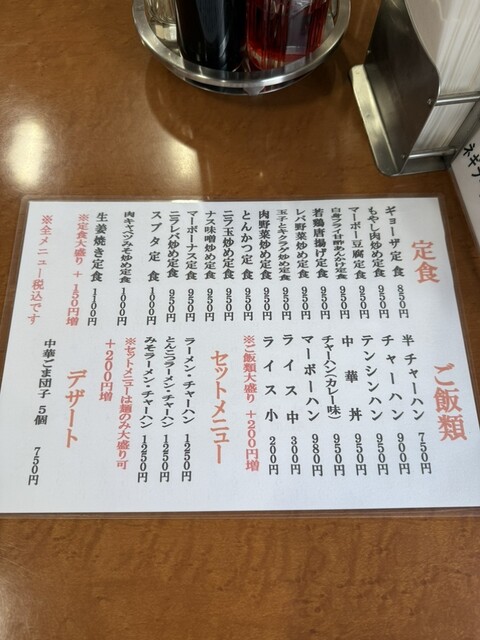 定食
ギョーザ定食 850円
もやし肉炒め定食 950円
マーボー豆腐定食 950円
白身フライ甘酢あんかけ定食 950円
若鶏唐揚げ定食 950円
レバ野菜炒め定食 950円
玉子とキクラゲ炒め定食 950円
肉野菜炒め定食 950円
とんかつ定食 950円
ニラ玉炒め定食 950円
ナス味噌炒め定食 950円
マーボーナス定食 950円
ニラレバ炒め定食 950円
スブタ定食 1000円
肉キャベツみそ炒め定食 1000円
生姜焼き定食 1100円
※定食大盛り+150円増
※全メニュー税込です
ご飯類
半チャーハン 750円
チャーハン 900円
テンシンハン 950円
中華丼 950円
チャーハン(カレー味) 950円
マーボーハン 980円
ライス中 300円
ライス小 200円
※ご飯類大盛り+200円増
セットメニュー
ラーメン・チャーハン 1250円
とんこつラーメン・チャーハン 1250円
みそラーメン・チャーハン 1250円
※セットメニューは麺のみ大盛り可
+200円増
デザート
中華ごま団子 5個 750円
ネギ